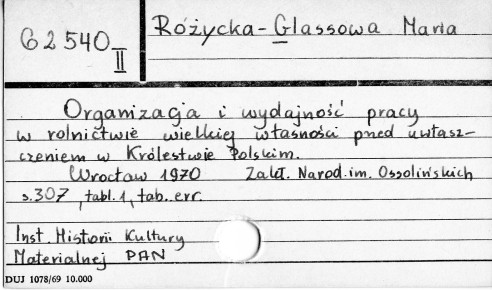 62540 II
Różycka-Glassowa Maria
Organizacja i wydajność pracy
w rolnictwie wielkiej własności przed uwłasz-
czeniem w Królestwie Polskim.
Wrocław 1970 Zakł. Narod. im. Ossolińskich
s. 307, tabl. 1, tab. err.
Inst. Historii Kultury
Materialnej PAN
DUJ 1078/69 10.000